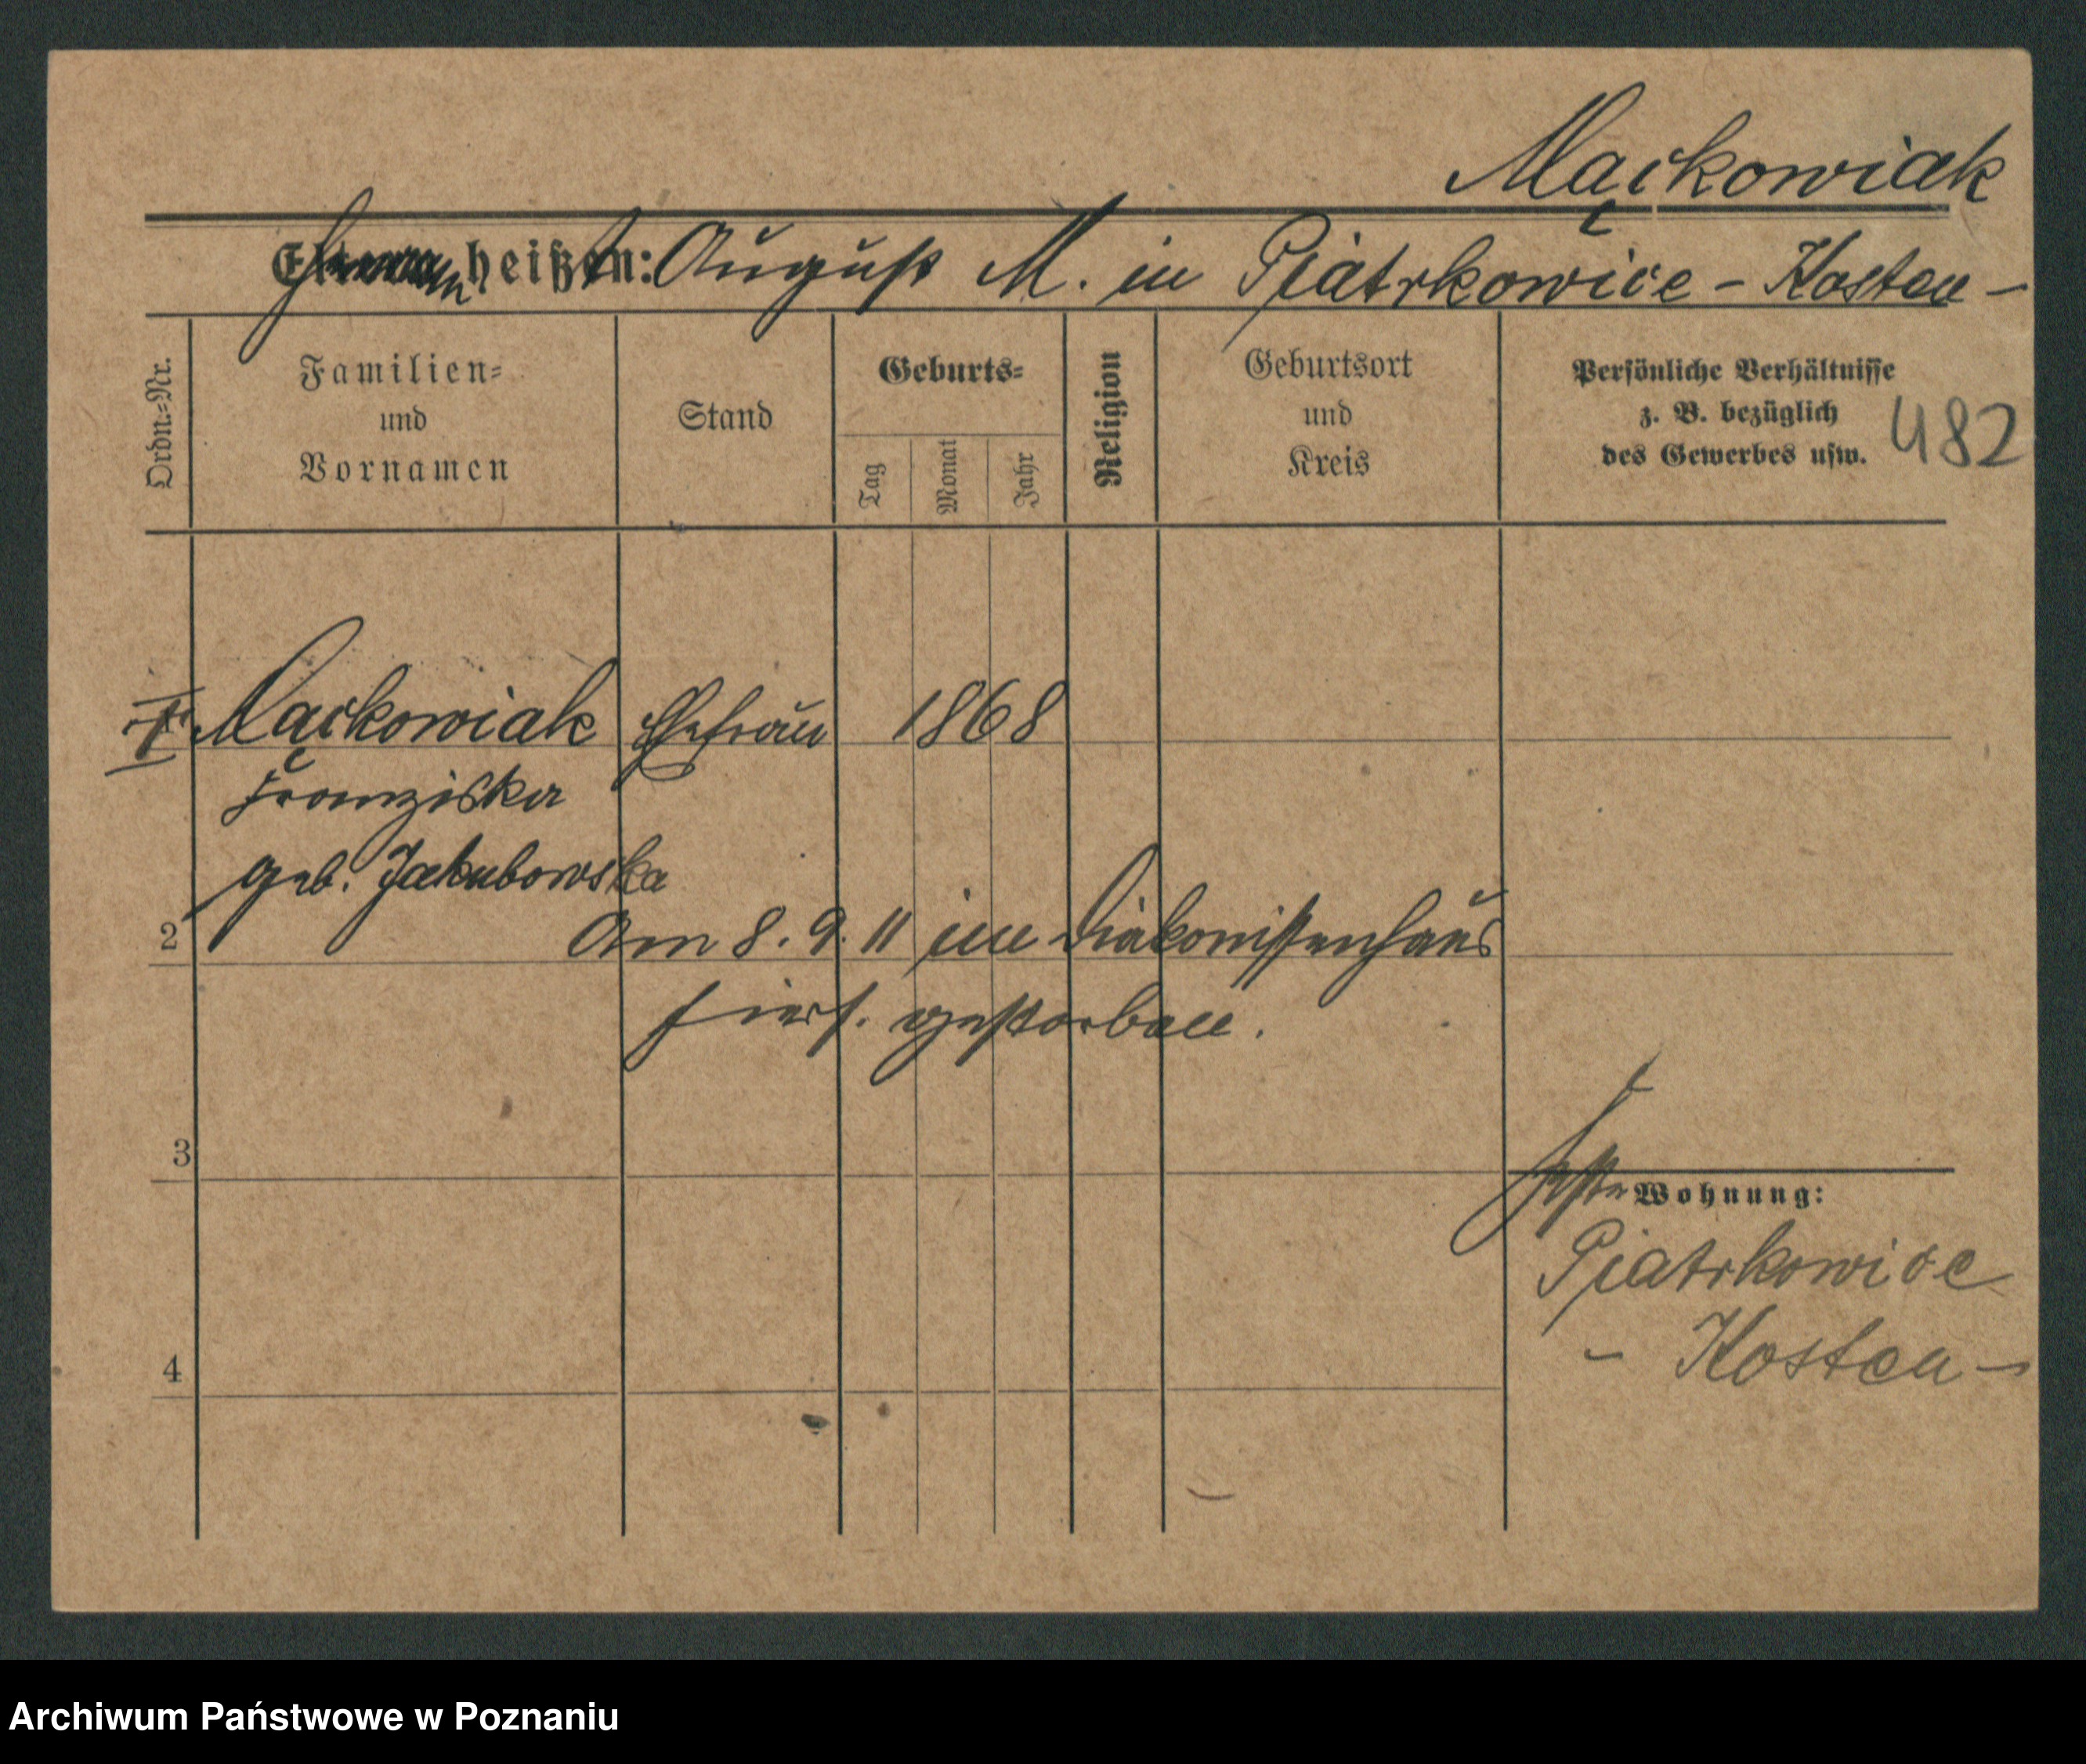 Mąckowiak
Ehemann heißt: August M. in Piątrkowice - Kosten -
Ordn.-Nr.
Familien-
und
Vornamen
Stand
Geburts-
Tag
Monat
Jahr
Religion
Geburtsort
und
Kreis
Persönliche Verhältnisse
z. B. bezüglich
des Gewerbes usw.
482
Mąckowiak Ehefrau 1868
Franziska
geb. Jakubowska
2
Am 8. 9. 11 im Diakonissenhaus
hiers. gestorben.
3
feste Wohnung:
Piatrkowice
- Kosten -
4
Archiwum Państwowe w Poznaniu